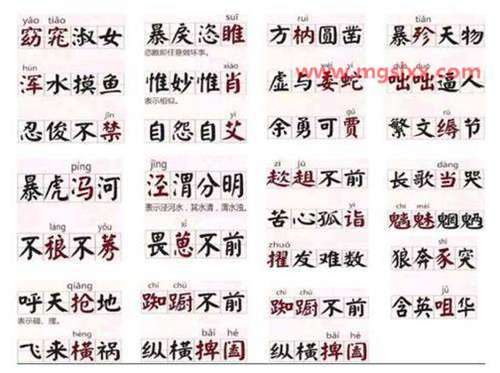 yǎo tiǎo suī ruì tiǎn
窈窕淑女 暴戾恣睢 方枘圆凿 暴殄天物
hún xiào duō duō
浑水摸鱼 惟妙惟肖 虚与委蛇 咄咄逼人
www.mgslxx.com
表示相似。
jīn yì gǔ rù
忍俊不禁 自怨自艾 余勇可贾 繁文缛节
píng jīng zī jū dàng
暴虎冯河 泾渭分明 趑趄不前 长歌当哭
表示泾河水，其水清，渭水浊。
yì
苦心孤诣 魑魅魍魉
láng yǒu xǐ zhuó
不稂不莠 畏葸不前 擢发难数 狼奔豕突
qiāng chí chú chí chú jǔ
呼天抢地 踟蹰不前 踟蹰不前 含英咀华
hèng bǎi hé bǎi hé
飞来横祸 纵横捭阖 纵横捭阖